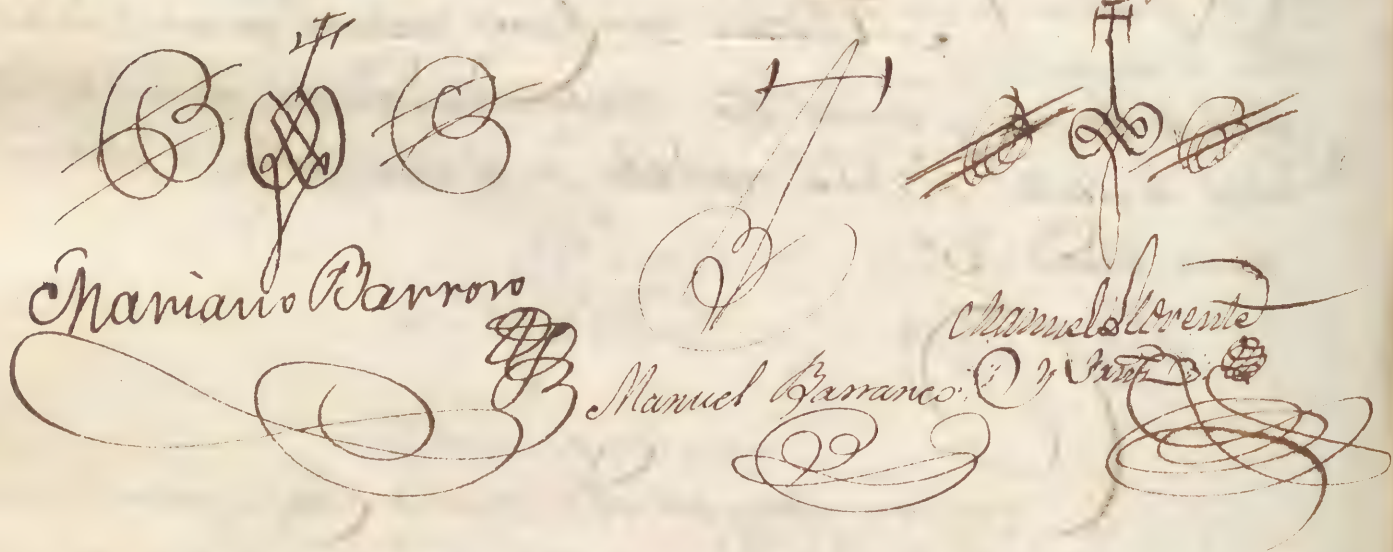 Mariano Barroso
Manuel Barranco
Manuel Llorente
y